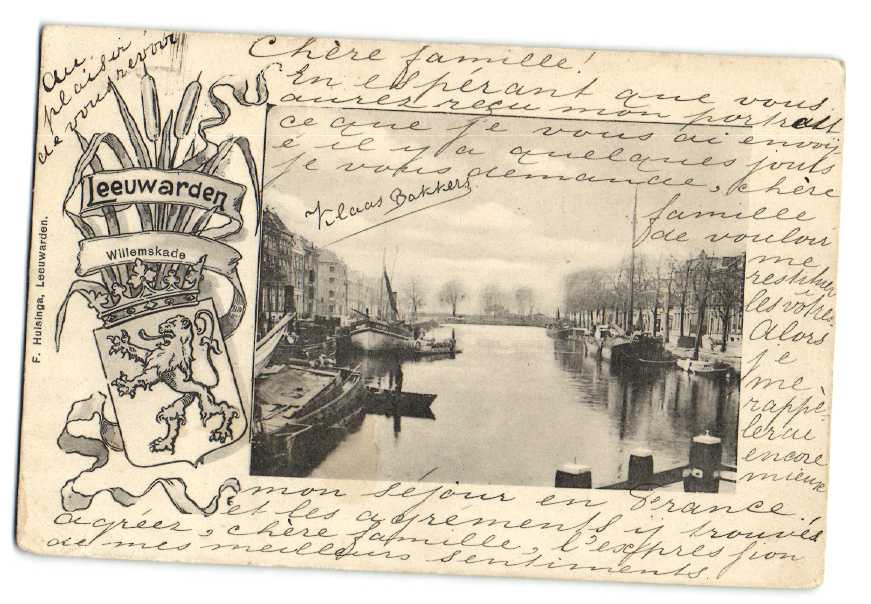 au
plaisir
de vous revoir
Chère famille!
En espérant que vous
aurez reçu mon portrait
ce que je vous ai envoy
é il y a quelques jours
je vous demande, chère
famille
de vouloir
me
restituer
les vôtres.
Alors
je
me
rappè-
lerai
encore
mieux
mon séjour en France!
et les agréments y trouvés
agréez, chère famille, l'expression
de mes meilleurs sentiments.
Klaas Bakkers
Leeuwarden
Willemskade
F. Huisinga, Leeuwarden.